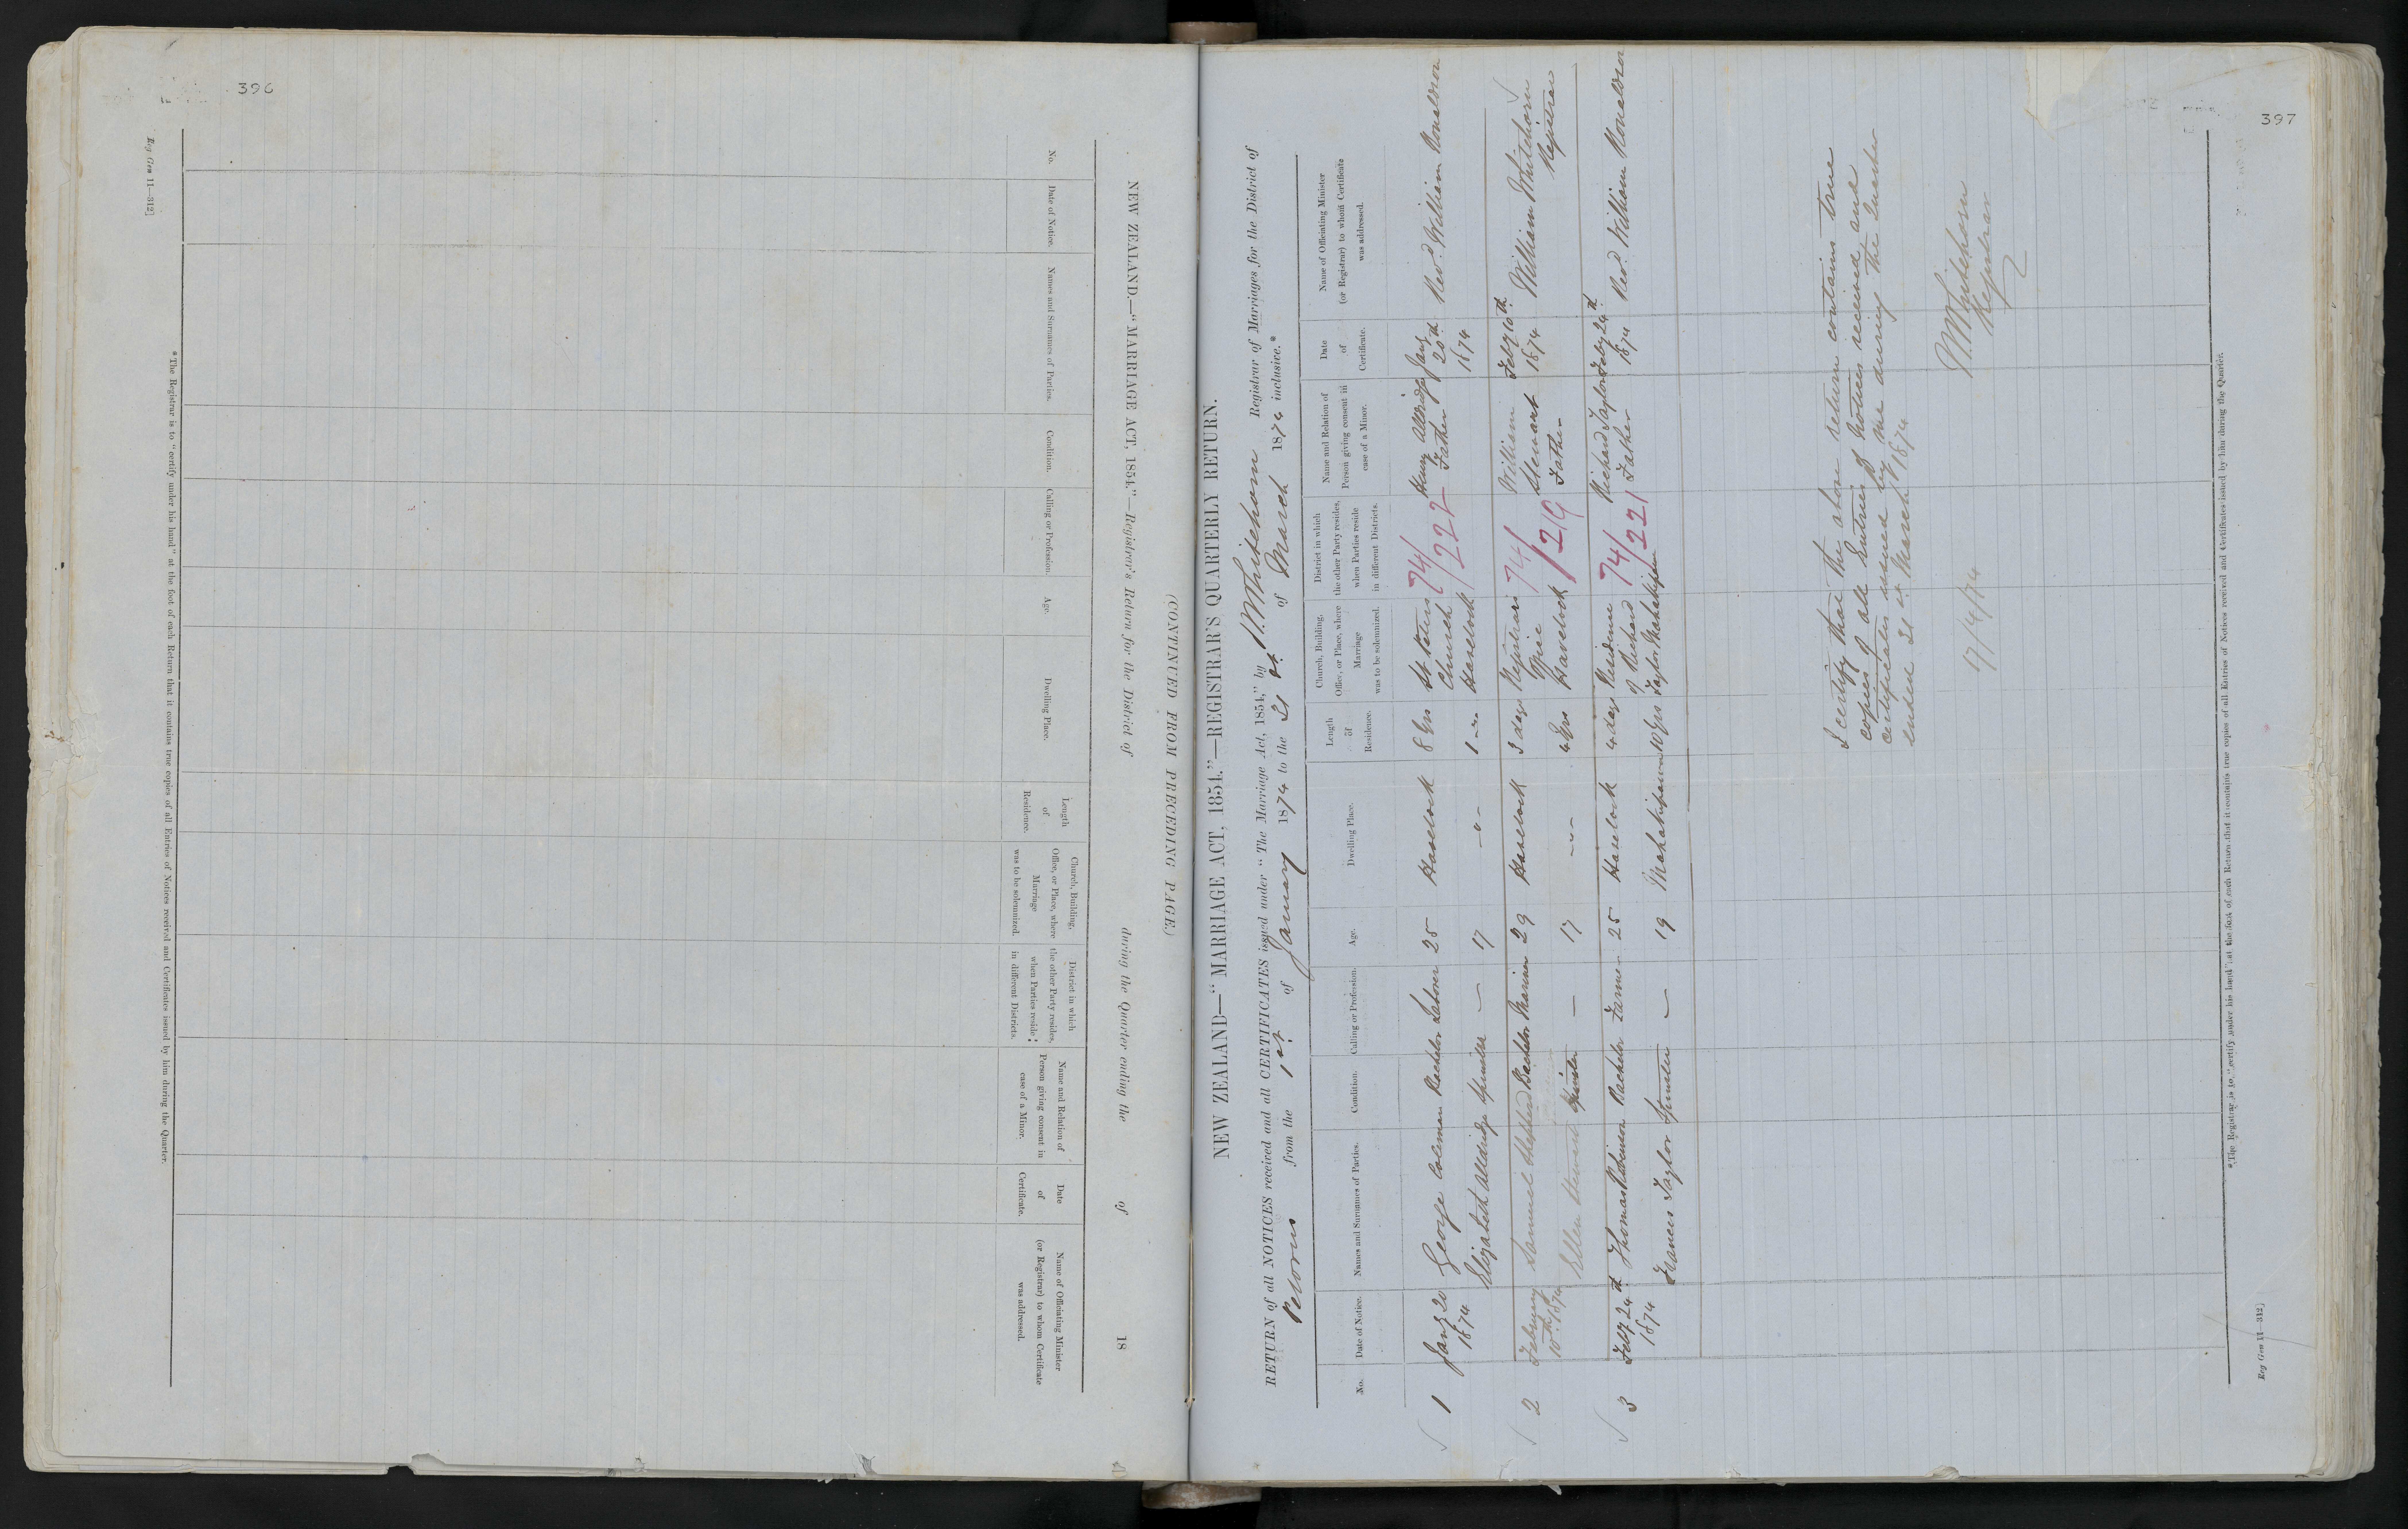 396
(CONTINUED FROM PRECEDING PAGE.)
NEW ZEALAND.—"MARRIAGE ACT, 1854."—Registrar's Return for the District of during the Quarter ending the of 18
No.
Date of Notice.
Names and Surnames of Parties.
Condition.
Calling or Profession.
Age.
Dwelling Place.
Length
of
Residence.
Church, Building,
Office, or Place, where
Marriage
was to be solemnized.
District in which
the other Party resides,
when Parties reside
in different Districts.
Name and Relation of
Person giving consent in
case of a Minor.
Date
of
Certificate.
Name of Officiating Minister
(or Registrar) to whom Certificate
was addressed.
*The Registrar is to "certify under his hand" at the foot of each Return that it contains true copies of all Entries of Notices received and Certificates issued by him during the Quarter.
Reg Gen 11—312]
397
NEW ZEALAND—"MARRIAGE ACT, 1854."—REGISTRAR'S QUARTERLY RETURN.
RETURN of all NOTICES received and all CERTIFICATES issued under "The Marriage Act, 1854," by W. Whitehorn Registrar of Marriages for the District of
Pelorus from the 1st of January 1874 to the 31st of March 1874 inclusive.*
No.
Date of Notice.
Names and Surnames of Parties.
Condition.
Calling or Profession.
Age.
Dwelling Place.
Length
of
Residence.
Church, Building,
Office, or Place, where
Marriage
was to be solemnized.
District in which
the other Party resides,
when Parties reside
in different Districts.
Name and Relation of
Person giving consent in
case of a Minor.
Date
of
Certificate.
Name of Officiating Minister
(or Registrar) to whom Certificate
was addressed.
1 Jany 20 George Coleman Bachelor Laborer 25 Havelock 8 yrs St Peters 74/222 Henry Alldridge Jany Revd. William Ronaldson
1874 Elizabeth Alldridge Spinster — 17 -"- 1 -"- Church Father 20th
Havelock 1874
2 February Samuel Shepherd Bachelor Mariner 29 Havelock 3 days Registrars 74/219 William Feby 10th William Whitehorn
10th 1874 Ellen Stewart Spinster — 17 -"- 4 yrs Office Stewart 1874 Registrar
Havelock Father
3 Feby 24th Thomas Robinson Bachelor Farmer 25 Havelock 4 days Residence 74/221 Richard Taylor Feby 24th Revd. William Ronaldson
1874 Frances Taylor Spinster — 19 Mahakipawa 10 yrs of Richard Father 1874
Taylor Mahakipawa
I certify that the above return contains true
copies of all Entries of Notices received and
certificates issued by me during the Quarter
ended 31st March 1874
W. Whitehorn
Registrar
17/4/74
*The Registrar is to "certify under his hand" at the foot of each Return that it contains true copies of all Entries of Notices received and Certificates issued by him during the Quarter.
Reg Gen 11—312]